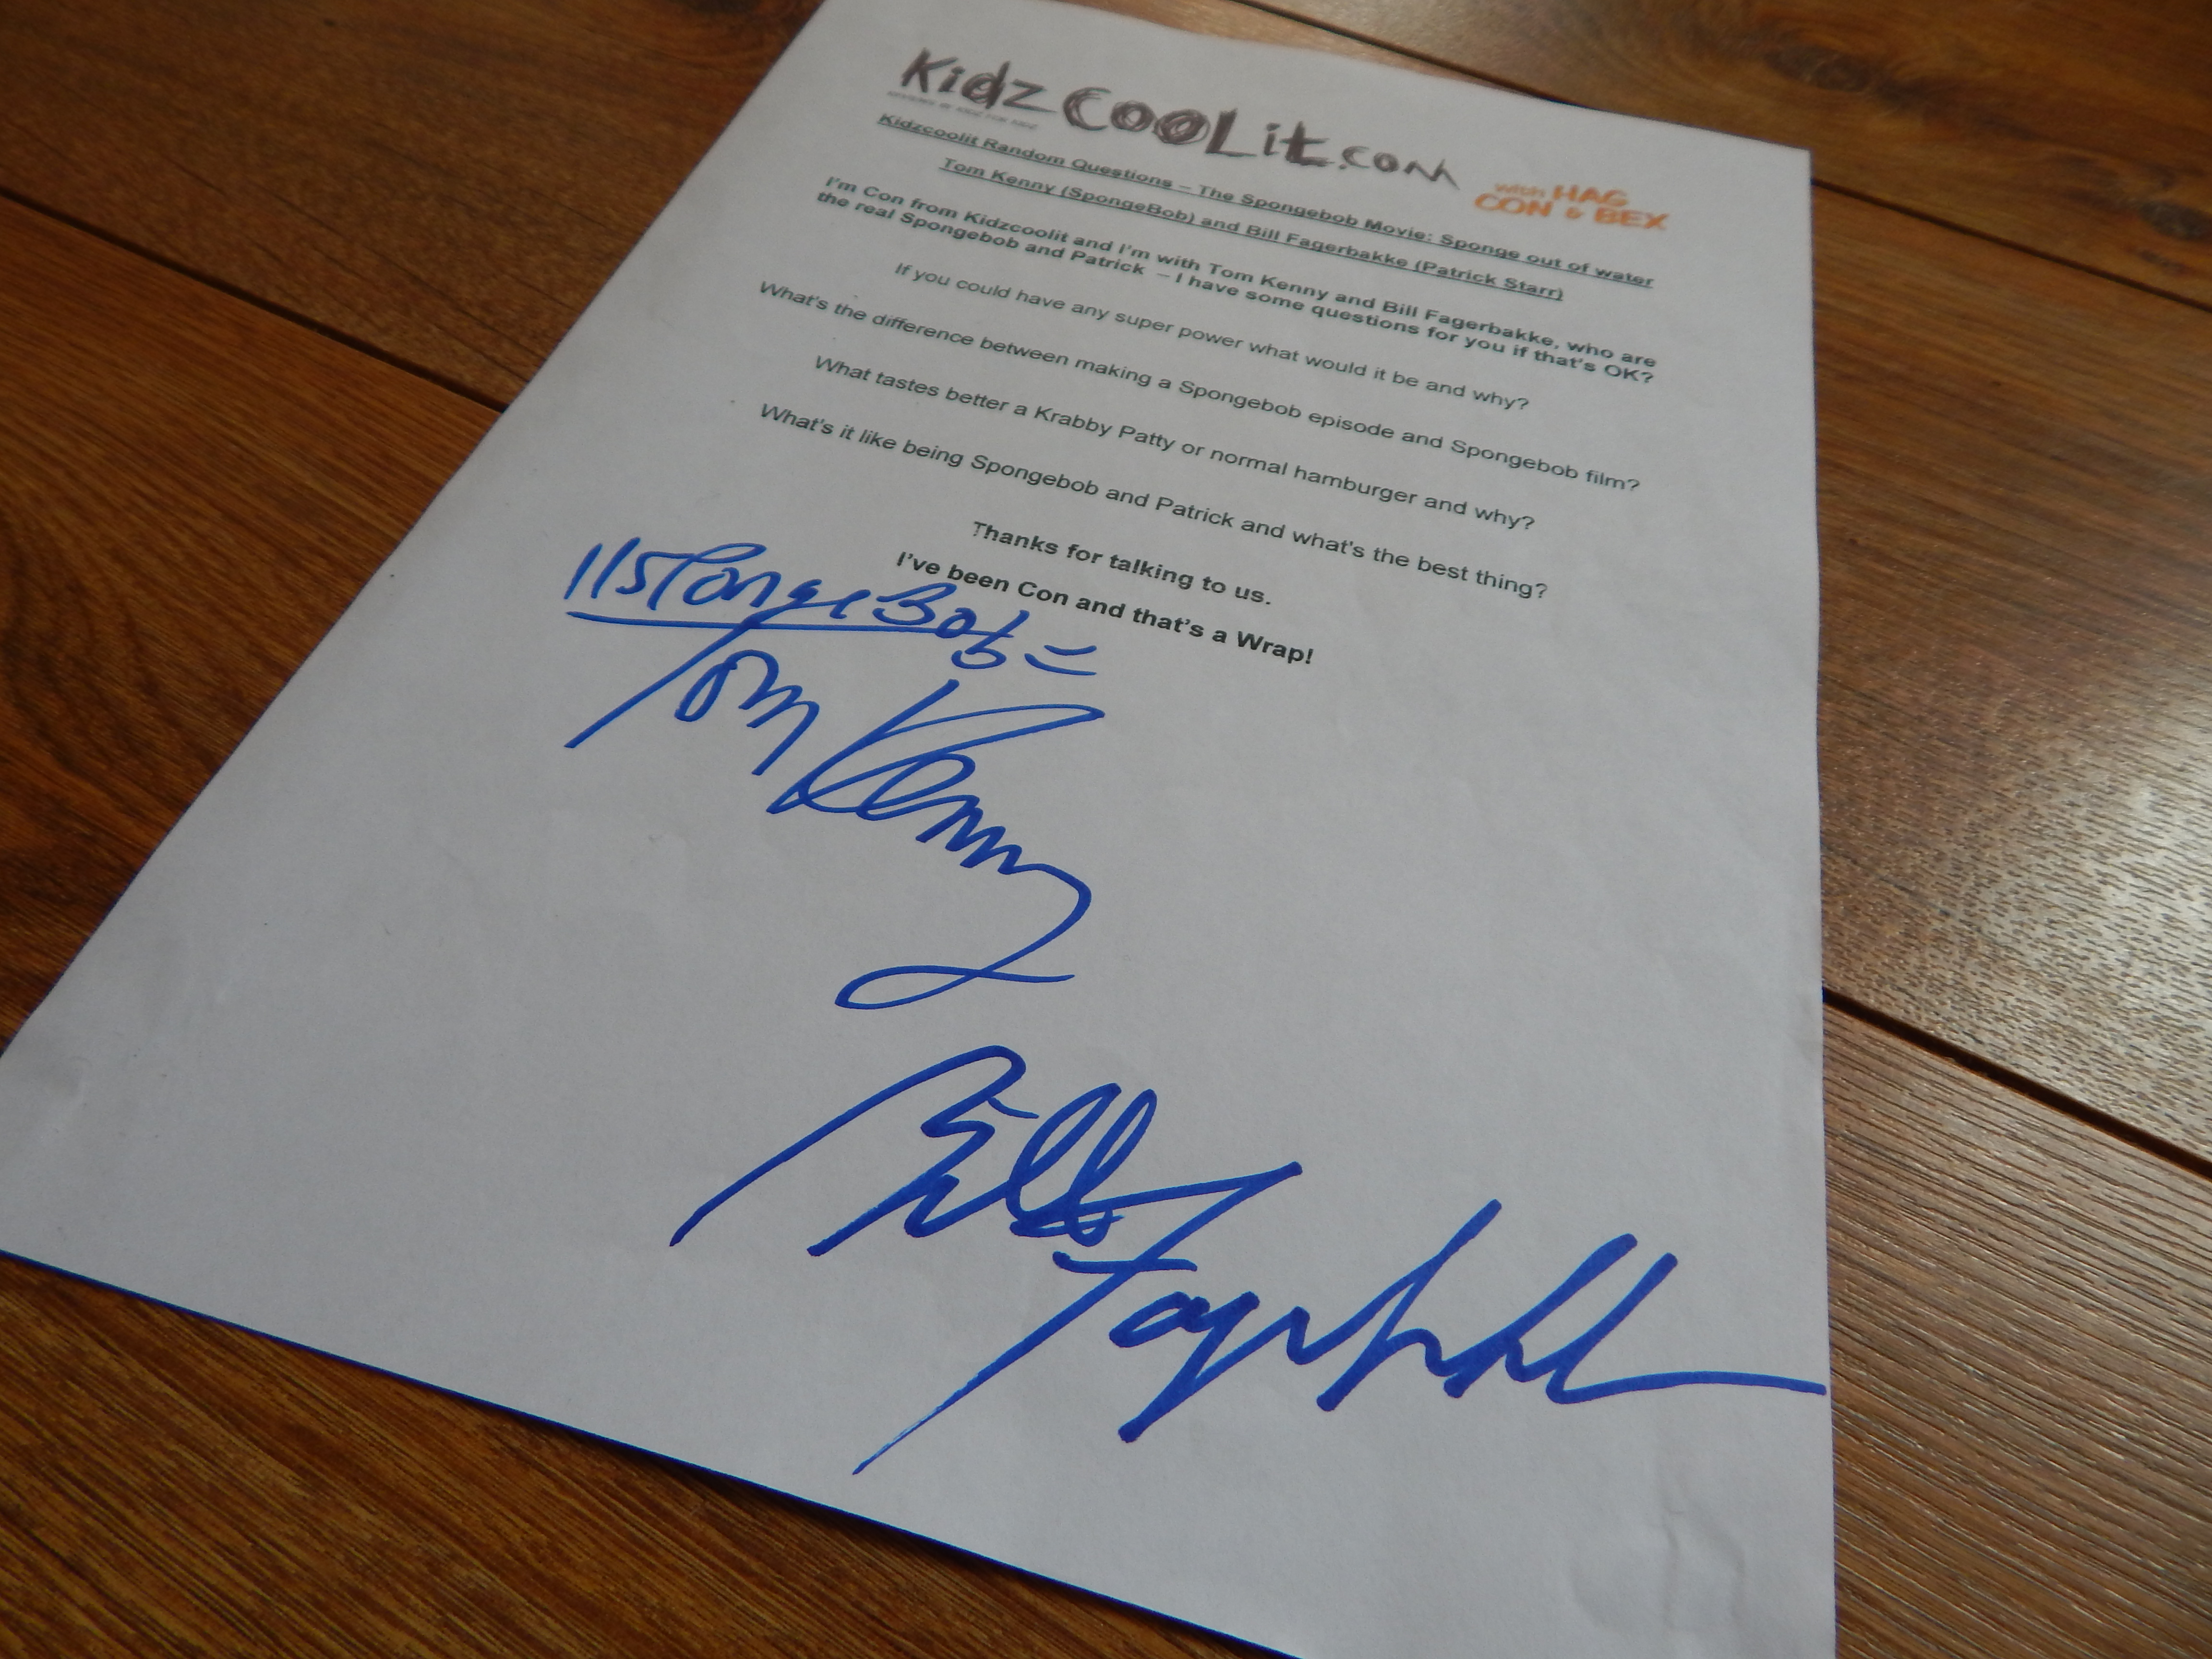 KidzCOOLit.com
with HAG
CON & BEX
Kidzcoolit Random Questions – The Spongebob Movie: Sponge out of water
Tom Kenny (SpongeBob) and Bill Fagerbakke (Patrick Starr)
I'm Con from Kidzcoolit and I'm with Tom Kenny and Bill Fagerbakke, who are
the real Spongebob and Patrick – I have some questions for you if that's OK?
If you could have any super power what would it be and why?
What's the difference between making a Spongebob episode and Spongebob film?
What tastes better a Krabby Patty or normal hamburger and why?
What's it like being Spongebob and Patrick and what's the best thing?
Thanks for talking to us.
I've been Con and that's a Wrap!
"SpongeBob"
Tom Kenny
Bill Fagerbakke